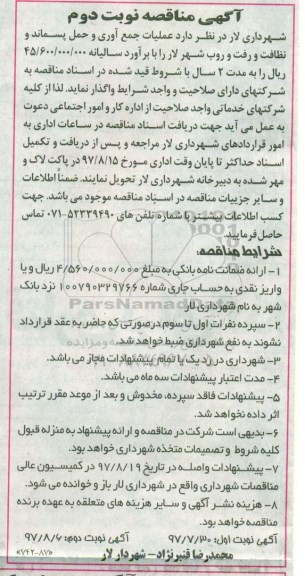 آگهی مناقصه نوبت دوم
شهرداری لار در نظر دارد عملیات جمع آوری و حمل پسماند و
نظافت و رفت و روب شهر لار را با برآورد سالیانه ۴۵/۶۰۰/۰۰۰/۰۰۰
ریال را به مدت ۲ سال با شروط قید شده در اسناد مناقصه به
شرکتهای دارای صلاحیت و واجد شرایط واگذار نماید. لذا از کلیه
شرکتهای خدماتی واجد صلاحیت از اداره کار و امور اجتماعی دعوت
به عمل می آید جهت دریافت اسناد مناقصه در ساعات اداری به
امور قراردادهای شهرداری لار مراجعه و پس از دریافت و تکمیل
اسناد حداکثر تا پایان وقت اداری مورخ ۹۷/۸/۱۵ در پاکت لاک و
مهر شده به دبیرخانه شهرداری لار تحویل نمایند. ضمناً اطلاعات
و سایر جزییات مناقصه در اسناد مناقصه موجود می باشد. جهت
کسب اطلاعات بیشتر با شماره تلفن های ۵۲۳۳۹۴۹۰-۰۷۱ تماس
حاصل فرمایید.
شرایط مناقصه:
۱- ارائه ضمانت نامه بانکی به مبلغ ۴/۵۶۰/۰۰۰/۰۰۰ ریال و یا
واریز نقدی به حساب جاری شماره ۱۰۰۷۹۰۳۲۹۷۶۶ نزد بانک
شهر به نام شهرداری لار
۲- سپرده نفرات اول تا سوم درصورتی که حاضر به عقد قرارداد
نشوند به نفع شهرداری ضبط خواهد شد.
۳- شهرداری در رد یک یا تمام پیشنهادات مجاز می باشد.
۴- مدت اعتبار پیشنهادات سه ماه می باشد.
۵- پیشنهادات فاقد سپرده، مخدوش و بعد از موعد مقرر ترتیب
اثر داده نخواهد شد.
۶- بدیهی است شرکت در مناقصه و ارائه پیشنهاد به منزله قبول
کلیه شروط و تصمیمات متخذه شهرداری خواهد بود.
۷- پیشنهادات واصله در تاریخ ۹۷/۸/۱۹ در کمیسیون عالی
مناقصات شهرداری واقع در شهرداری لار باز و خوانده می شود.
۸- هزینه نشر آگهی و سایر هزینه های متعلقه به عهده برنده
مناقصه خواهد بود.
آگهی نوبت اول: ۹۷/۷/۳۰ آگهی نوبت دوم: ۹۷/۸/۶
محمدرضا قنبرنژاد- شهردار لار «۷۴۲-۸۷»